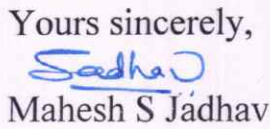 Yours sincerely,
Jadhav
Mahesh S Jadhav